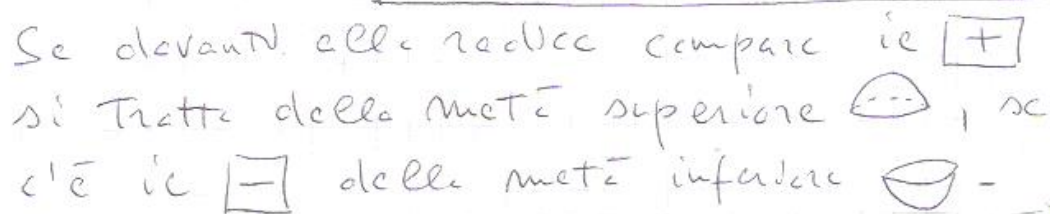 Se davanti alla radice compare il +
si tratta della metà superiore , se
c'è il − della metà inferiore -